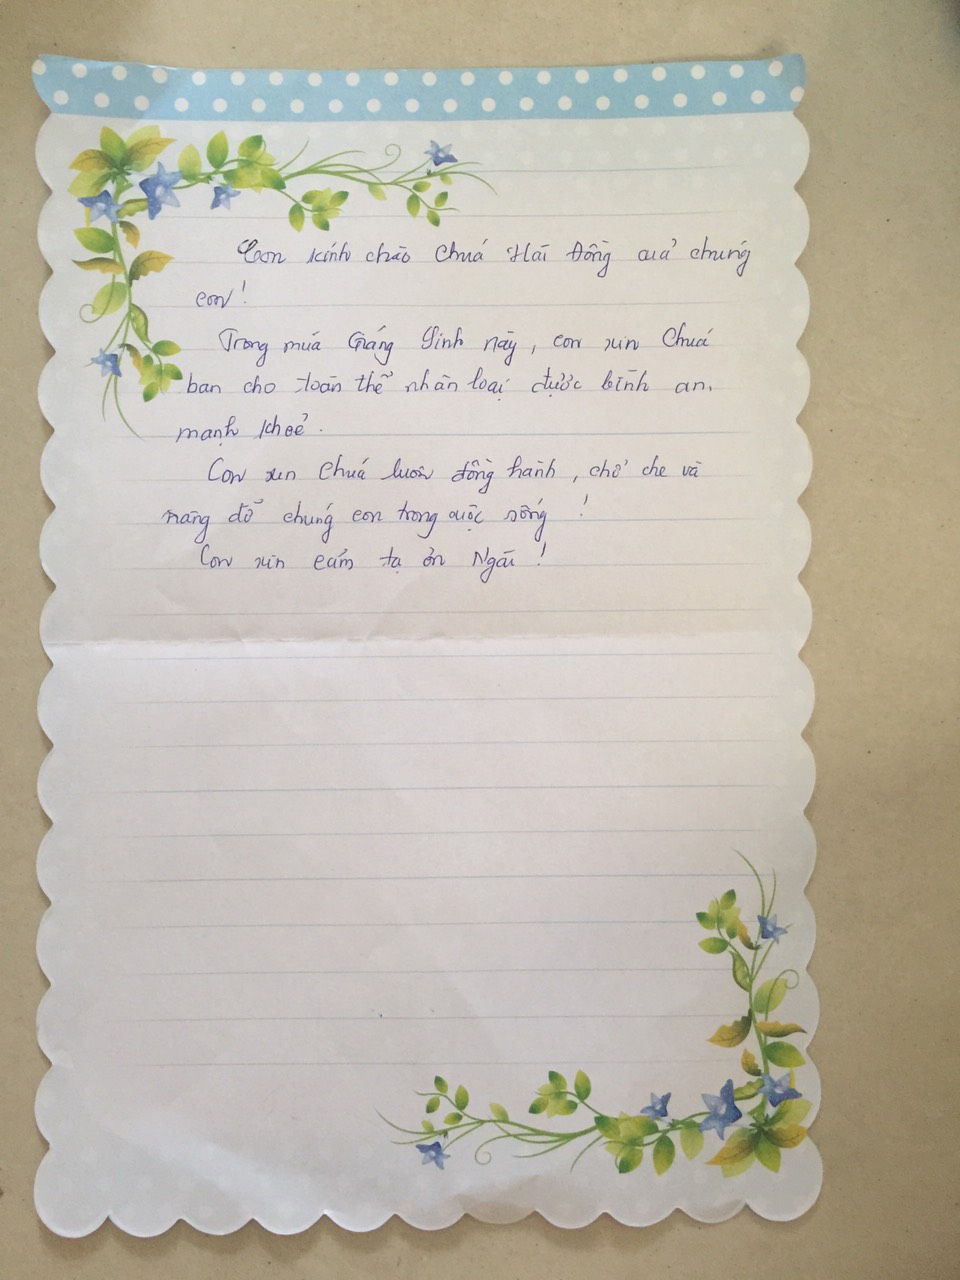 Con kính chào Chúa Hài Đồng của chúng
con!
Trong mùa Giáng Sinh này, con xin Chúa
ban cho toàn thể nhân loại được bình an,
mạnh khoẻ.
Con xin Chúa luôn đồng hành, chở che và
nâng đỡ chúng con trong cuộc sống!
Con xin cám tạ ơn Ngài!